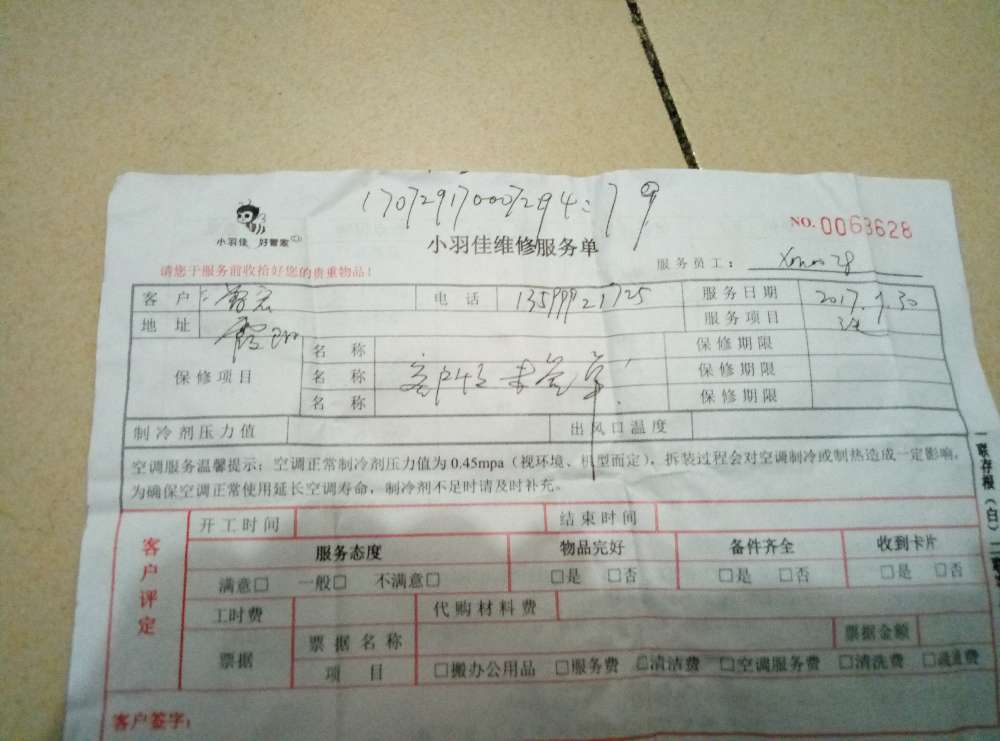 170729170007294:79
小羽佳 好管家
小羽佳维修服务单
NO.0063628
请您于服务前收拾好您的贵重物品！
服务员工：
客户： 电话 13599921725 服务日期 2017.7.30
地址 服务项目
保修项目 名称 保修期限
名称 客户 未签单 保修期限
名称 保修期限
制冷剂压力值 出风口温度
空调服务温馨提示：空调正常制冷剂压力值为0.45mpa（视环境、机型而定），拆装过程会对空调制冷或制热造成一定影响，
为确保空调正常使用延长空调寿命，制冷剂不足时请及时补充。
一联存根（白）二联
客户评定
开工时间 结束时间
服务态度 物品完好 备件齐全 收到卡片
满意□ 一般□ 不满意□ □是 □否 □是 □否 □是 □否
工时费 代购材料费
票据 票据名称 票据金额
项目 □搬办公用品 □服务费 □清洁费 □空调服务费 □清洗费 □疏通费
客户签字：